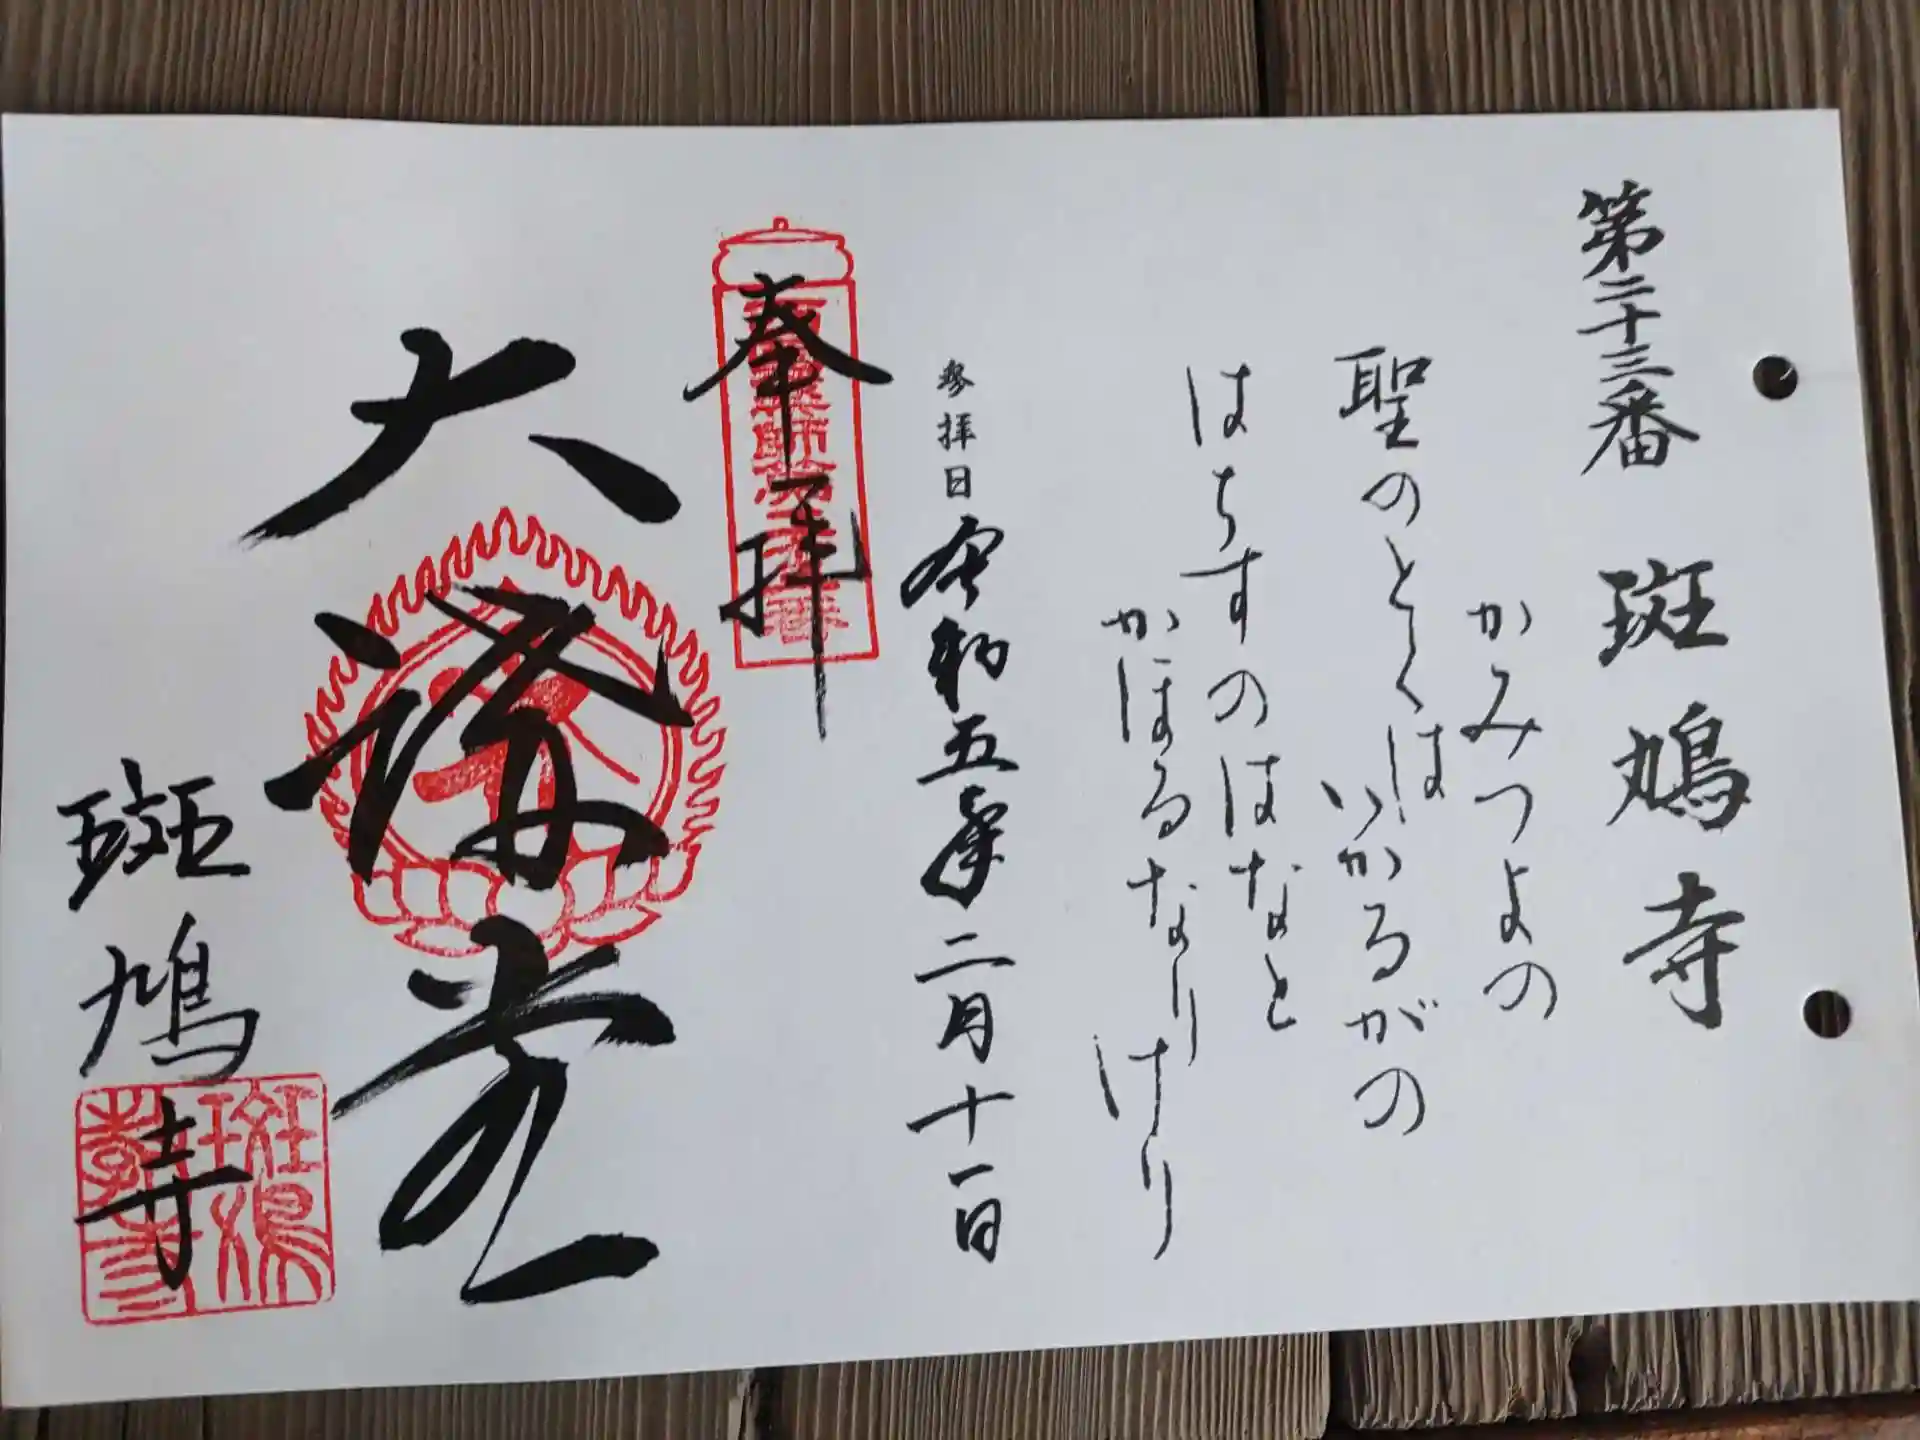 第二十三番 斑鳩寺
かみつよの
聖のとくは
いかるがの
はちすのはなと
かほるなりけり
参拝日 令和五年二月十一日
奉拝
大講堂
斑鳩寺
斑鳩